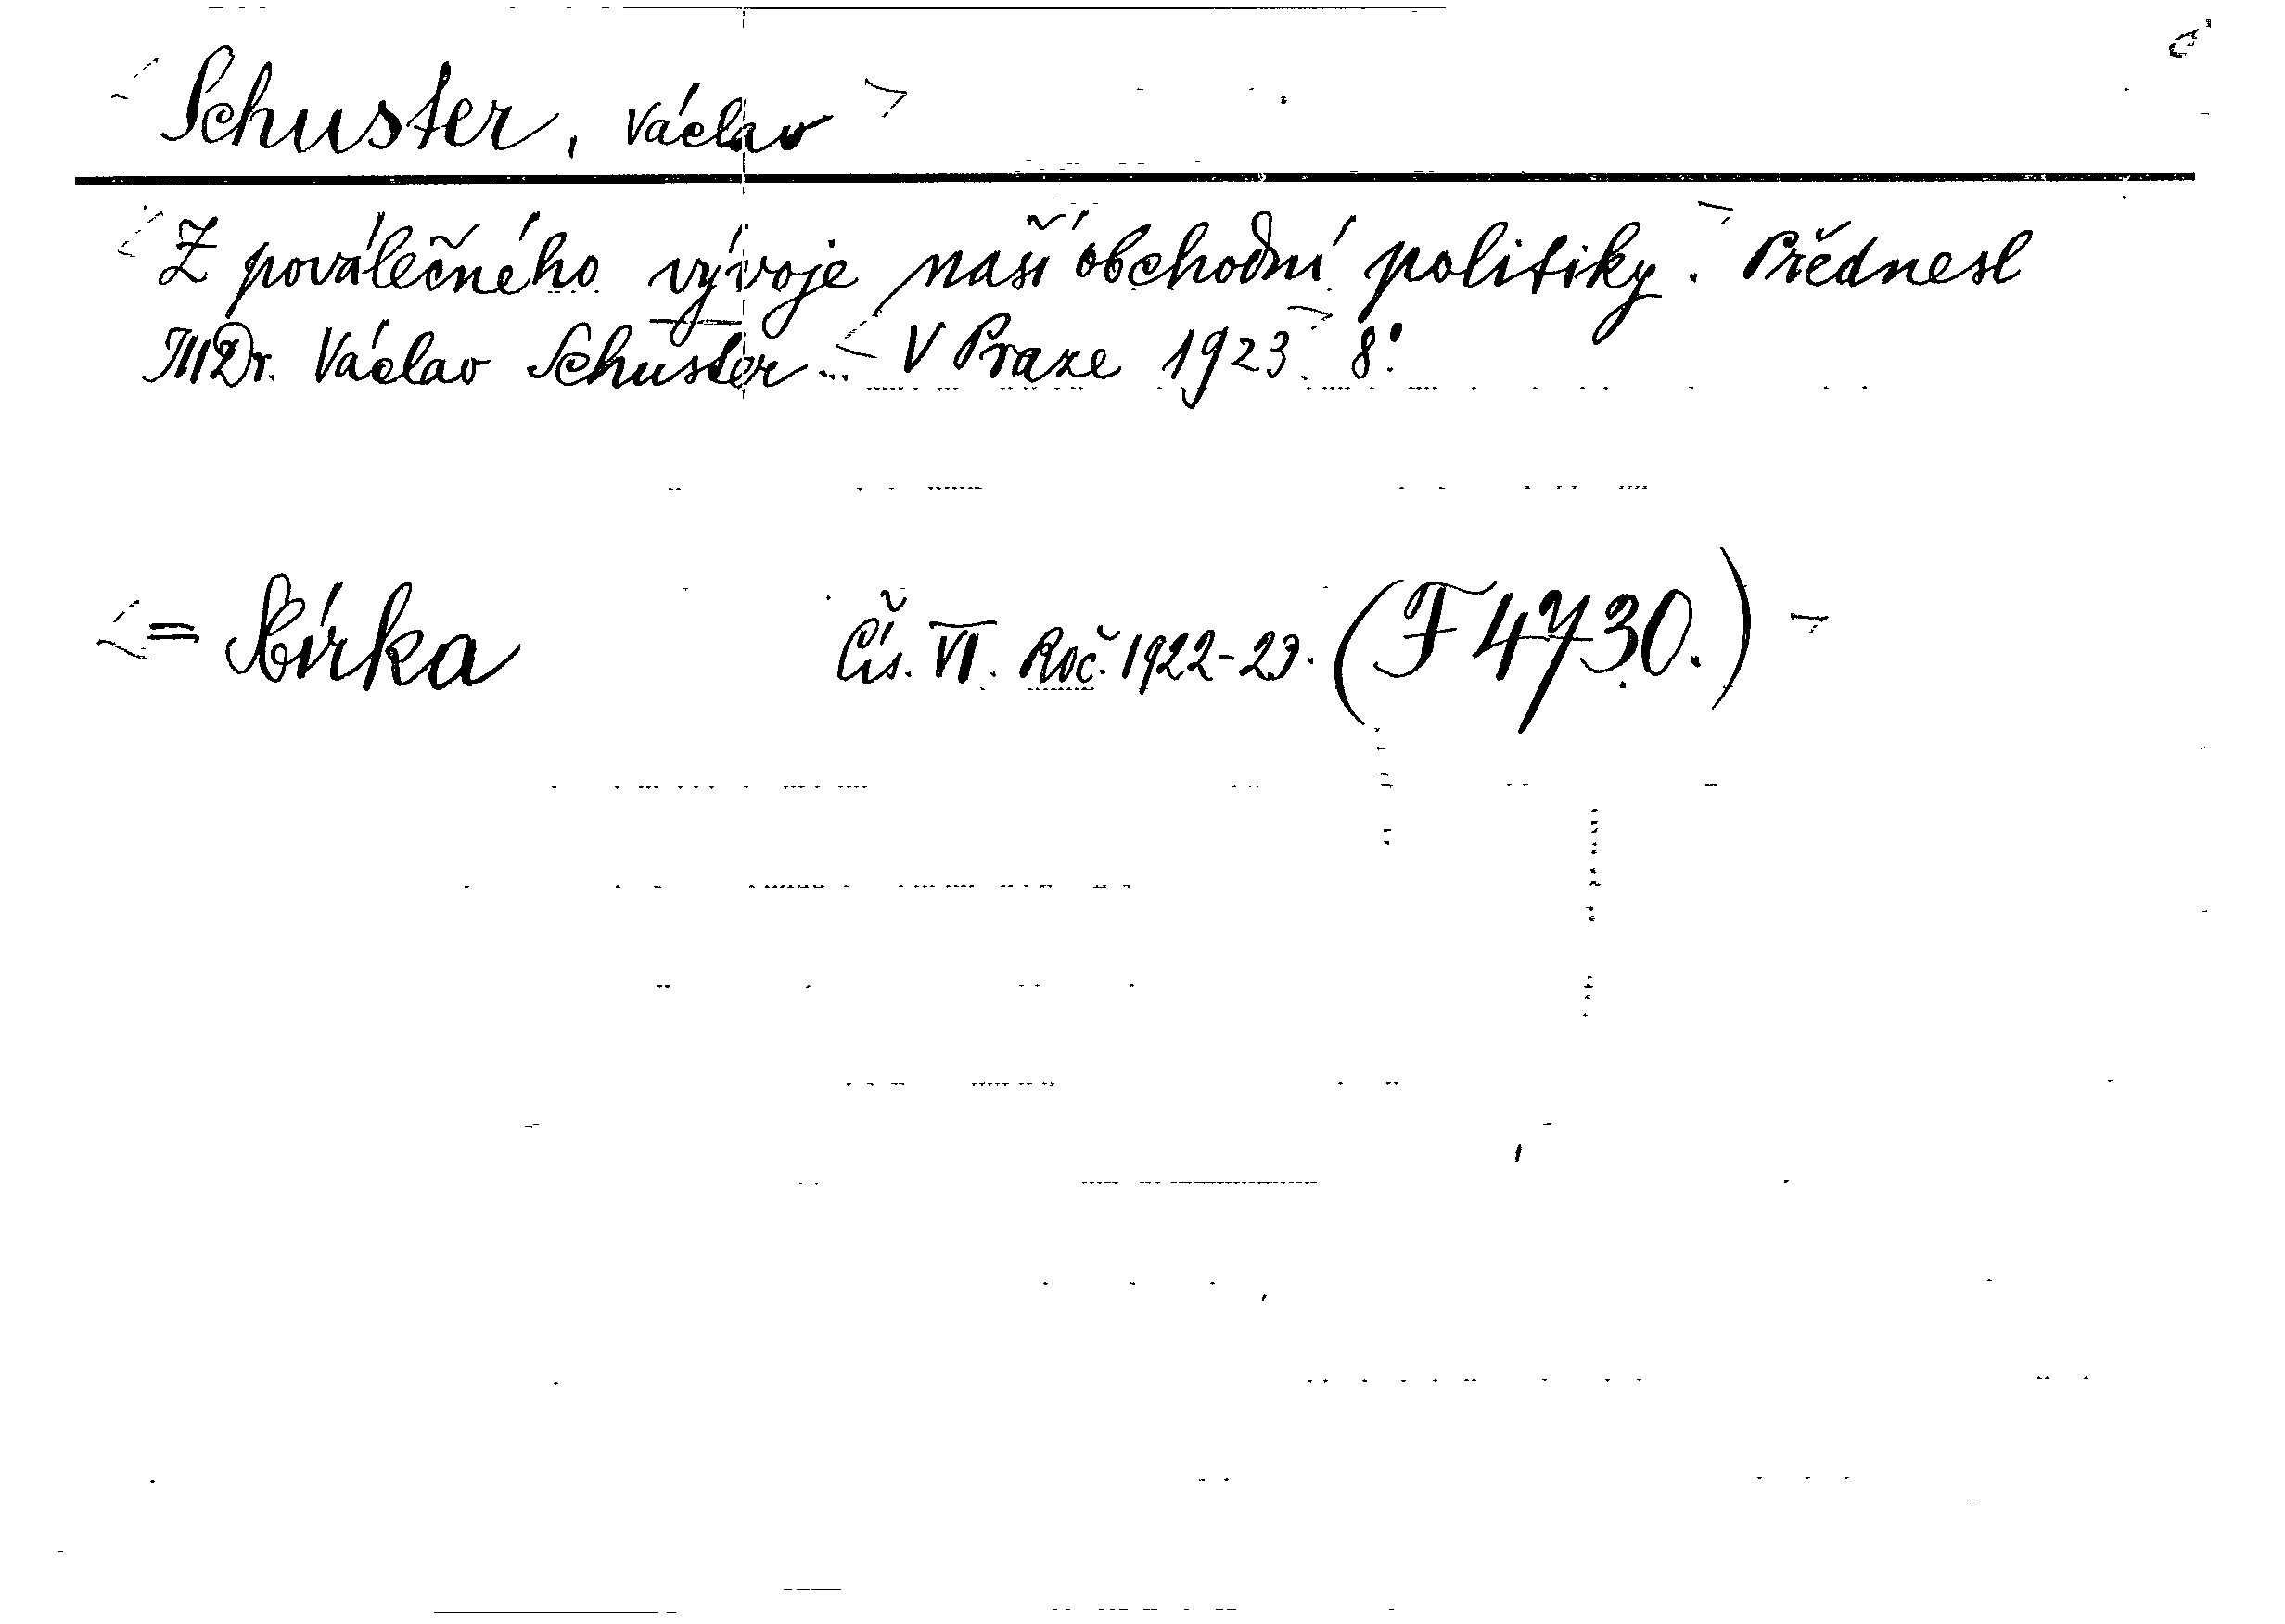 Schuster, Václav
Z poválečného vývoje naší obchodní politiky. Přednesl
JUDr. Václav Schuster... V Praze 1923. 8°.
= Sbírka Čís. VI. Roč. 1922-23. (F 4730.)